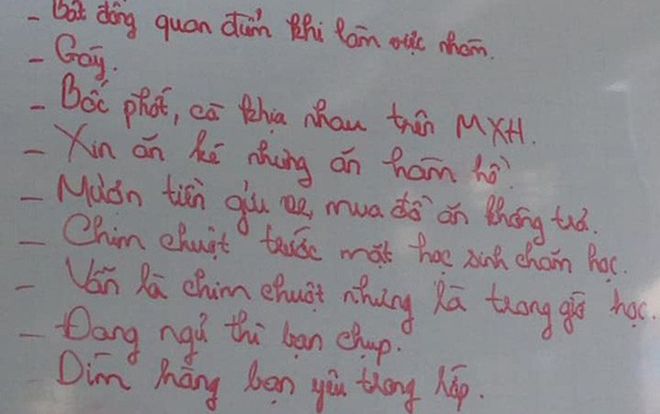 - Bất đồng quan điểm khi làm việc nhóm.
- Gãy.
- Bóc phốt, cà khịa nhau trên MXH.
- Xin ăn ké nhưng ăn hàm hồ.
- Mượn tiền gửi xe, mua đồ ăn không trả.
- Chim chuột trước mặt học sinh chăm học.
- Vẫn là chim chuột nhưng là trong giờ học.
- Đang ngủ thì bạn chụp.
- Dìm hàng bạn yêu trong lớp.